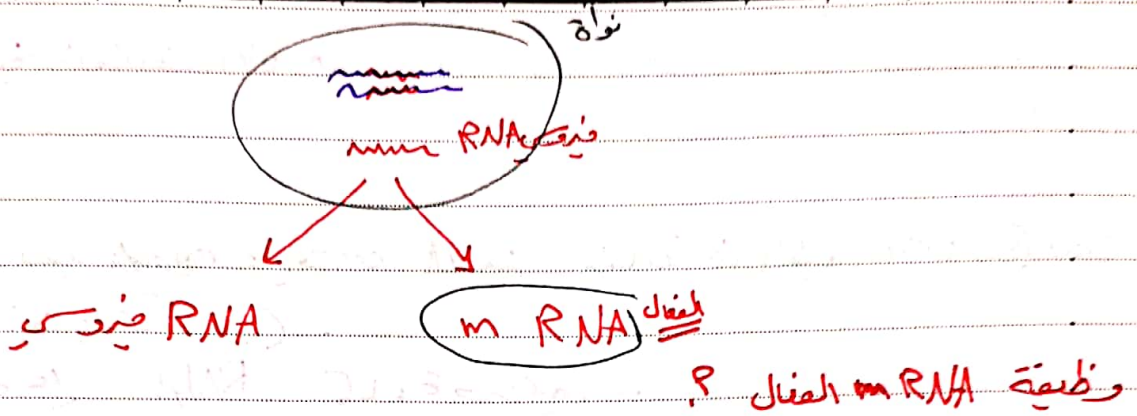 نواة
RNA فيروسي
RNA فيروسي
m RNA الفعال
وظيفة m RNA الفعال ؟